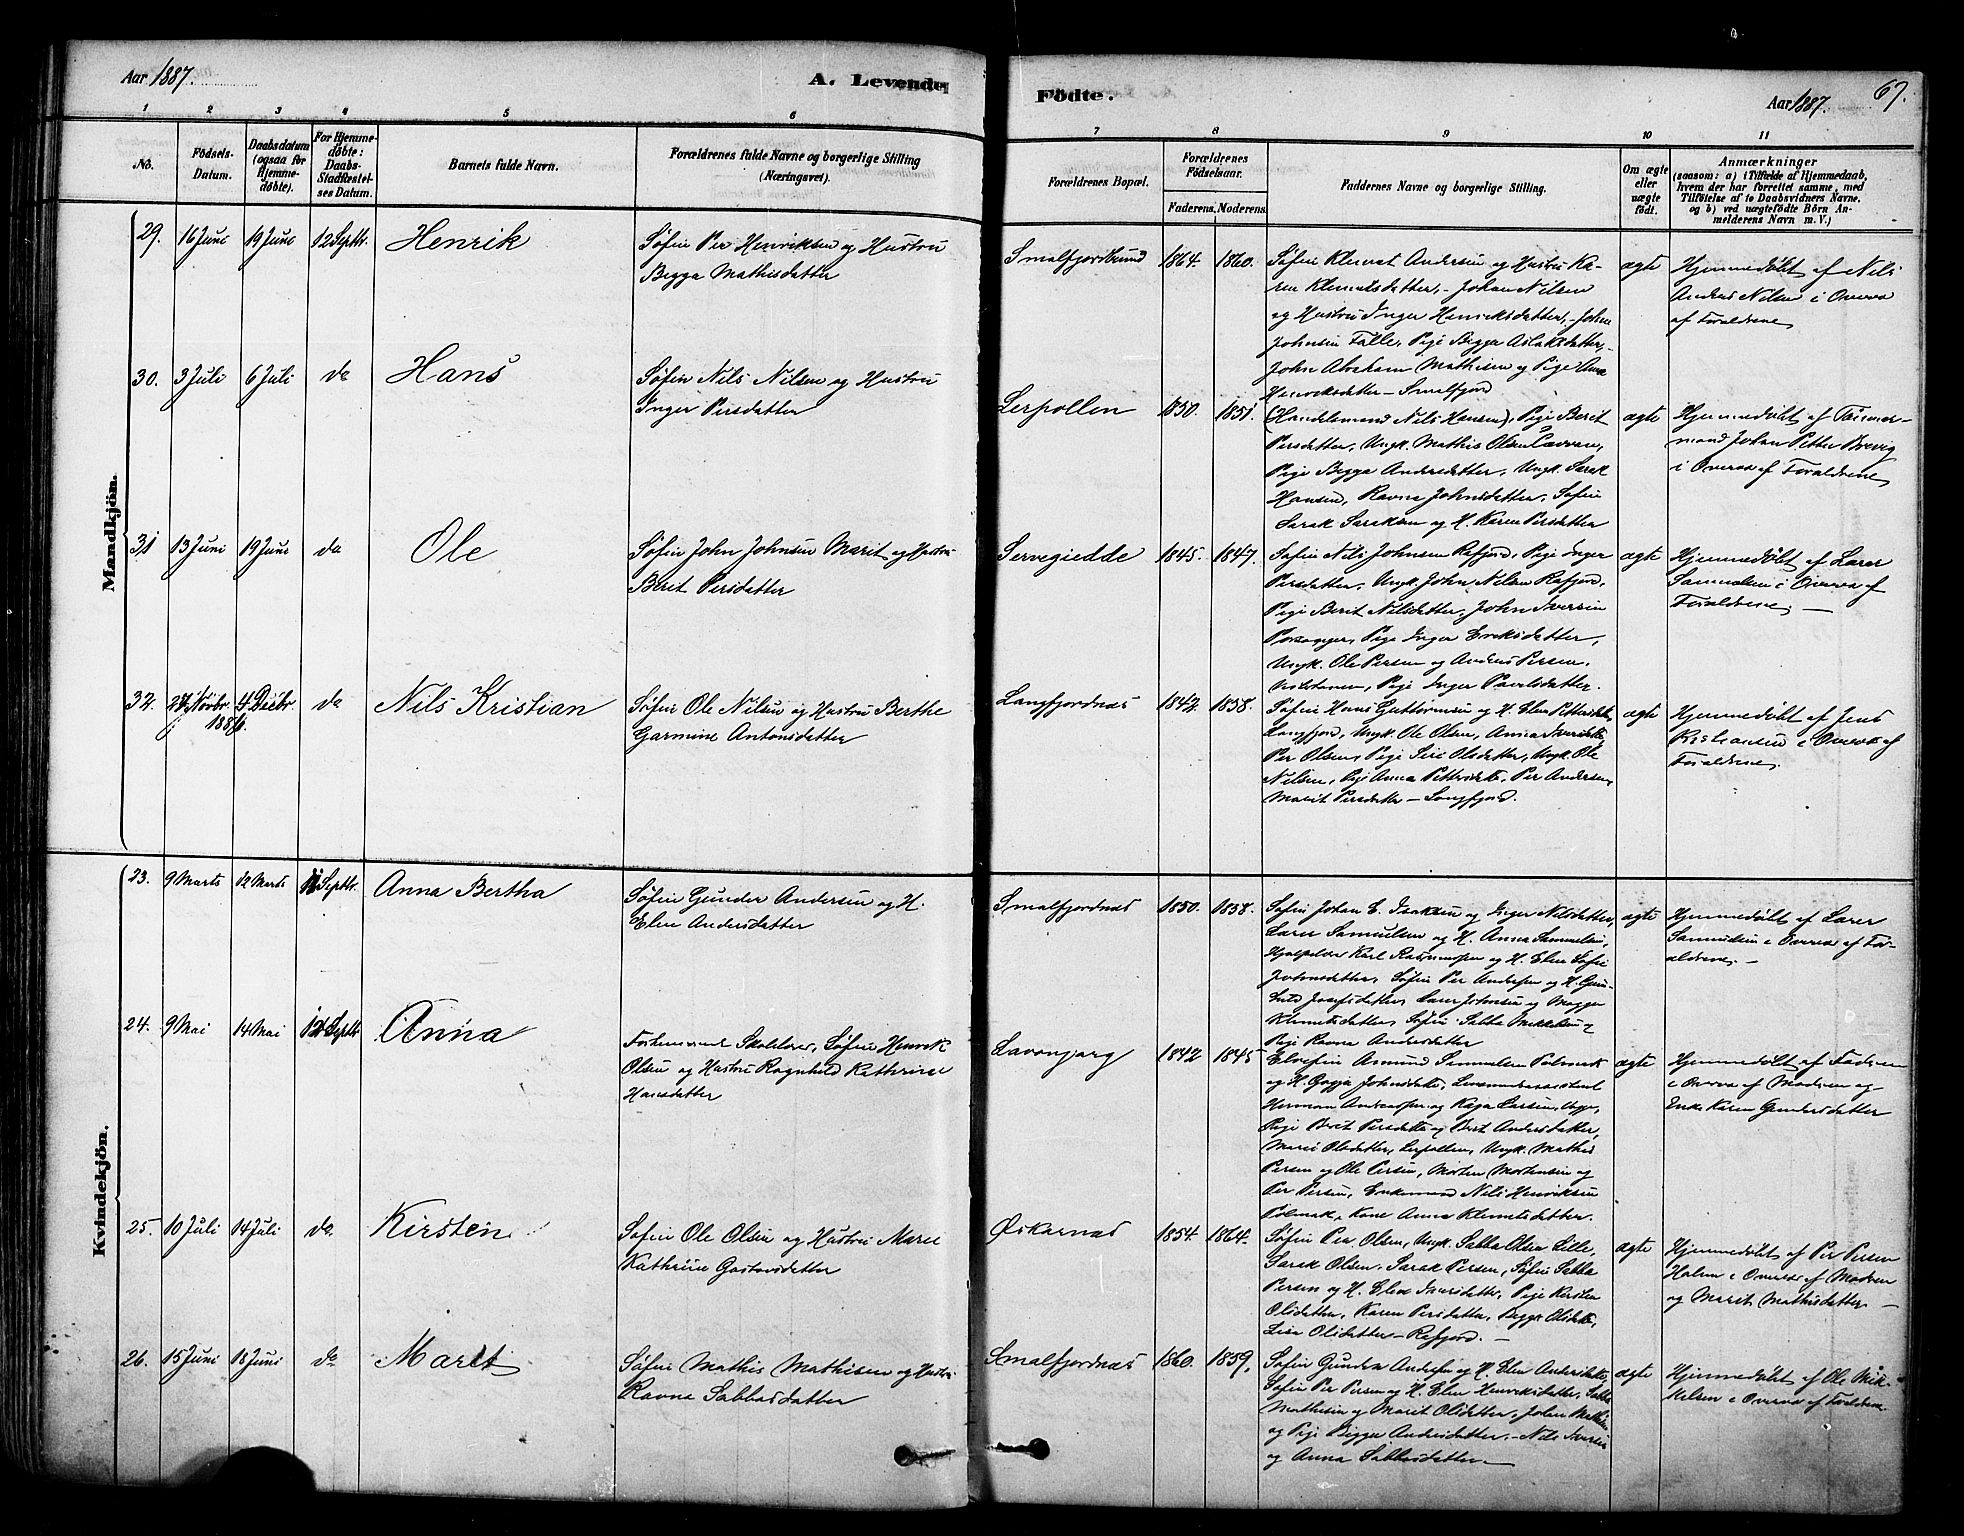 Aar 1887.
A. Levende
Födte.
Aar 1887.
67.
1 2 3 4 5 6 7 8 9 10 11
No.
Födsels-
Datum.
Daabsdatum
(ogsaa for
Hjemme-
døbte).
For Hjemme-
døbte:
Daabs-
Stadfæstel-
ses Datum.
Barnets fulde Navn.
Forældrenes fulde Navne og borgerlige Stilling
(Næringsvei).
Forældrenes Bopæl.
Forældrenes
Födselsaar.
Faderens. Moderens.
Faddernes Navne og borgerlige Stilling.
Om ægte
eller
uægte
født.
Anmærkninger
(saasom: a) i Tilfælde af Hjemmedaab,
hvem der har forrettet samme, med
Tilföielse af to Daabsvidners Navne,
og b) ved uægtefödte Börn An-
melderens Navn m. V.)
Mandkjön.
29. 16 Juni 19 Juni 12 Septbr. Henrik
Søfin Per Henriksen og Hustru
Bigga Mathisdatter
Smalfjordbund 1864. 1860.
Søfin Klemet Andersen og Hustru Ka-
ren Klemetsdatter, - Johan Nilsen
og Hustru Inger Henriksdatter, - John
Johnsen Falle, Pige Bigga Aslaksdatter,
John Abraham Mathisen og Pige Anna
Henriksdatter - Smalfjord
ægte
Hjemmedøbt af Nils
Andreas Nilsen i Overvær
af Forældrene
30. 3 Juli 6 Juli do Hans
Søfin Nils Nilsen og Hustru
Inger Persdatter
Lerpollen 1850. 1851.
(Handelsmand Nils Hansen), Pige Berit
Persdatter, Ungk. Mathis Olsen
Pige Bigga Andersdatter, Ungk. Sarak
Hansen, Ravna Johnsdatter, Søfin
Sarak Sareksen og H. Karen Persdatter
ægte
Hjemmedøbt af Tømmer-
mand Johan Petter Brevig
i Overvær af Forældrene
31 13 Juni 19 Juni do Ole
Søfin John Johnsen Marit og Hustru
Berit Persdatter
Servegiedde 1845. 1847.
Søfin Nils Johnsen Refjord, Pige Inger
Persdatter, Ungk. John Nilsen Refjord,
Pige Berit Nilsdatter, John Iversen
Porsanger, Pige Inger Eriksdatter,
Ungk. Ole Persen og Anders Persen,
Pige Inger Paulsdatter.
ægte
Hjemmedøbt af Lærer
Samuelsen i Overvær af
Forældrene. —
32. 27 Novbr. 1886. 4 Decbr. do Nils Kristian
Søfin Ole Nilsen og Hustru Berthe
Garmine Antonsdatter
Langfjordnæs 1842. 1858.
Søfin Hans Guttormsen og H. Elen Pettersdatter
Langfjord, Ungk. Ole Olsen, Anna Iversdatter
Per Olsen, Pige Siri Olsdatter, Ungk. Ole
Nilsen, Pige Anna Pettersdatter, Per Andersen,
Marit Persdatter - Langfjord.
ægte
Hjemmedøbt af Jens
Kristiansen i Overvær af
Forældrene.
Kvindekjön.
23. 9 Marts 12 Marts Septbr. Anna Bertha
Søfin Gunder Andersen og H.
Elen Andersdatter
Smalfjordnæs 1850. 1858.
Søfin Johan E. Isaksen og Inger Nilsdatter,
Lærer Samuelsen og H. Anna Samuelsen,
Hjælpelærer Karl Rasmussen og H. Elen Sofie
Johnsdatter, Søfin Per Andersen og H. Gun-
hild Josefsdatter, Lærer Johnsen og Magga
Klemetsdatter, Søfin Sabba Mikkelsen og
Pige Ravna Andersdatter
ægte
Hjemmedøbt af Lærer
Samuelsen i Overvær af For-
ældrene. —
24. 9 Mai 14 Mai 12 Septbr Anna
Forhenværende Skolelærer, Søfin Henrik
Olsen og Hustru Ragnhild Kathrine
Hansdatter
Lavonjarg 1842 1845
Elvefin Asmund Samuelsen Polmak
og H. Gagga Johnsdatter, Lensmandsassistent
Herman Andreassen og Kaja Larsen, Vagge,
Pige Berit Persdatter og Berit Andersdatter,
Marie Olsdatter, Lerpollen, Ungk. Mathis
Persen og Ole Persen, Morten Mortensen og
Per Persen, Enkemand Nils Henriksen
Polmak, Kone Anna Klemetsdatter.
ægte
Hjemmedøbt af Faderen
i Overvær af Moderen og
Enke Karen Gundersdatter
25. 10 Juli 14 Juli do. Kirsten
Søfin Ole Olsen og Hustru Marie
Kathrine Gustavsdatter
Øskarnæs 1854. 1864.
Søfin Per Olsen, Ungk. Sabba Olsen Lille,
Sarak Olsen, Sarak Persen, Søfin Sabba
Persen og H. Elen Iversdatter, Pige Kirsten
Olsdatter, Karen Persdatter, Bigga Olsdatter,
Lisa Olsdatter - Refjord. —
ægte
Hjemmedøbt af Per Persen
Halsen i Overvær af Moderen
og Marit Mathisdatter —
26. 15 Juni 18 Juni do Marit
Søfin Mathis Mathisen og Hustru
Ravna Sabbasdatter
Smalfjordnæs 1860. 1859.
Søfin Gunder Andersen og H. Elen Andersdatter,
Søfin Per Persen og H. Elen Henriksdatter, Sabba
Mathisen og Marit Olsdatter, John Mathis
og Pige Bigga Andersdatter, - Nils Iversen
og Anna Sabbasdatter. —
ægte
Hjemmedøbt af Ole Mik-
kelsen i Overvær af Forældrene.